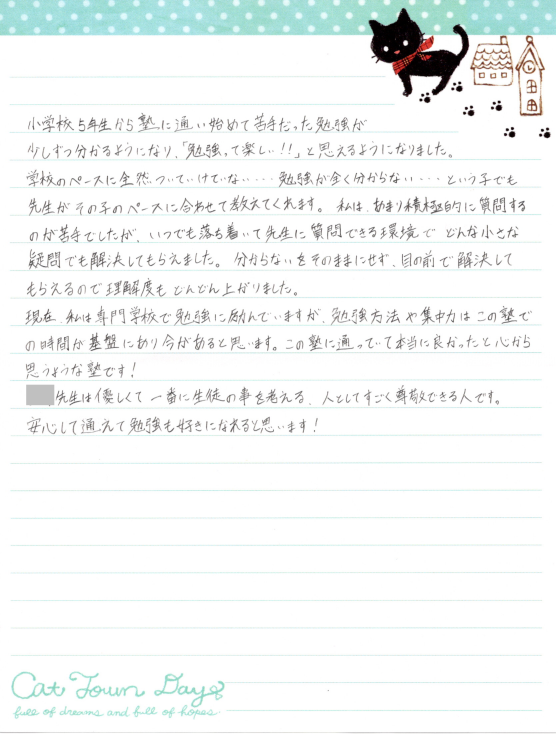 小学校5年生から塾に通い始めて苦手だった勉強が
少しずつ分かるようになり、「勉強って楽しい!!」と思えるようになりました。
学校のペースに全然ついていけていない・・・勉強が全く分からない・・・という子でも
先生がその子のペースに合わせて教えてくれます。 私は、あまり積極的に質問する
のが苦手でしたが、いつでも落ち着いて先生に質問できる環境で どんな小さな
疑問でも解決してもらえました。 分からないをそのままにせず、目の前で解決して
もらえるので理解度も どんどん上がりました。
現在、私は専門学校で勉強に励んでいますが、勉強方法や集中力はこの塾で
の時間が基盤にあり今があると思います。この塾に通っていて本当に良かったと心から
思うような塾です!
先生は優しくて 一番に生徒の事を考える、人としてすごく尊敬できる人です。
安心して通えて勉強も好きになれると思います!
Cat Town Days
full of dreams and full of hopes